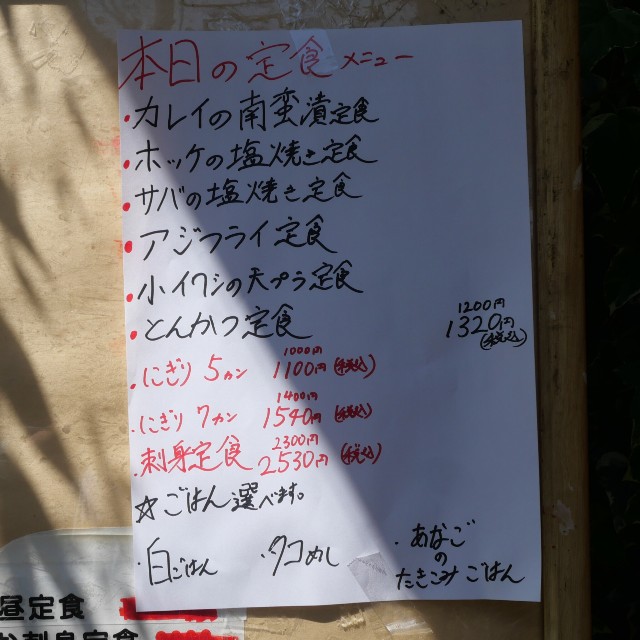 本日の定食メニュー
・カレイの南蛮漬定食
・ホッケの塩焼き定食
・サバの塩焼き定食
・アジフライ定食
・小イワシの天プラ定食
・とんかつ定食
1200円
1320円
(税込)
1000円
・にぎり 5カン 1100円(税込)
1400円
・にぎり 7カン 1540円(税込)
2300円
・刺身定食 2530円(税込)
☆ごはん選べます。
・白ごはん
・タコめし
・あなごのたきこみごはん
昼定食